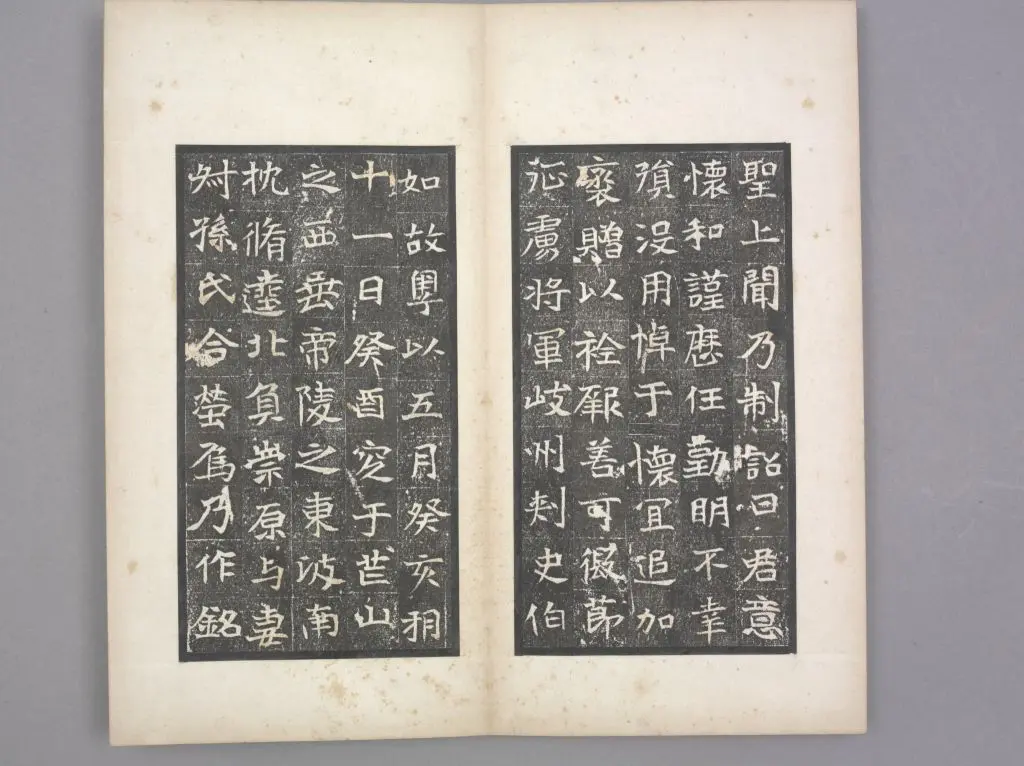 聖上聞乃制詔曰君意
懷和謹歷任勤明不幸
殞没用悼于懷宜追加
褒贈以銓厥善可假節
征虜將軍岐州刺史伯
如故粵以五月癸亥朔
十一日癸酉窆于芒山
之西垂帝陵之東陂南
枕脩北負崇原与妻
叔孫氏合塋焉乃作銘